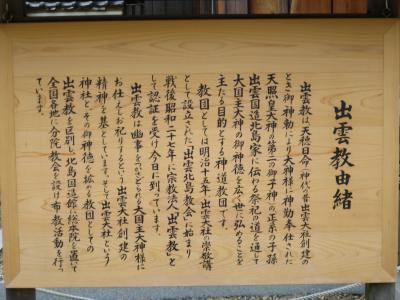 出雲教由緒
出雲教は天穂日命が神代の昔出雲大社創建の
とき御神勅により大神様に神勤奉仕された
天照皇大神の第二の御子神の正系の子孫
出雲国造北島家に伝わる祭祀の道を通して
大国主大神の御神徳を広く世に弘めることを
主たる目的とする神道教団です。
教団としては明治十五年出雲大社の崇敬講
として設立された「出雲北島教会」に始まり
戦後昭和二十七年に宗教法人「出雲教」と
して認証を受け今日に到っています。
出雲教は幽事をつかさどられる大国主大神様に
お仕えしお祀りするという出雲大社創建の
精神を基としています。そして出雲大社という
神社と、その御神徳を拡める教団としての
出雲教を区別し北島国造館に総本院を置いて
全国各地に分院教会を設け布教活動を行っ
ています。